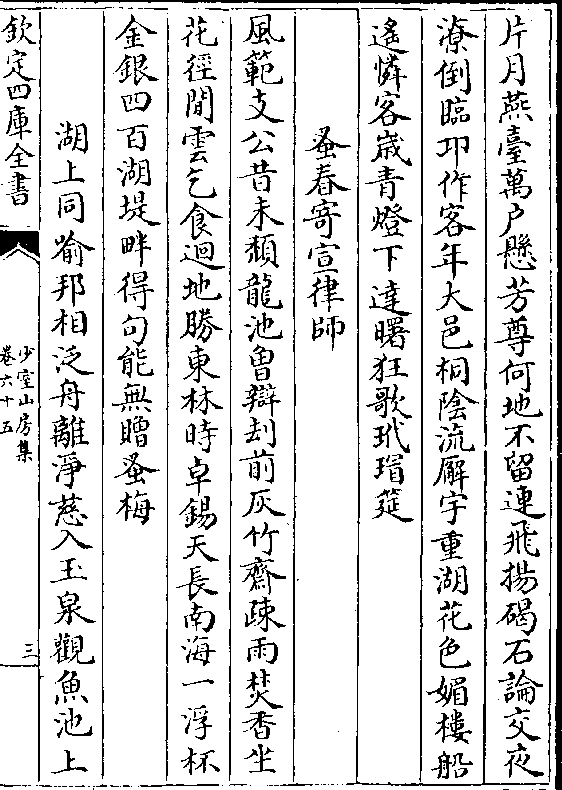 片月燕臺萬户懸芳尊何地不留連飛揚碣石論交夜
潦倒臨卭作客年大邑桐陰流廨宇重湖花色媚樓船
遙憐客嵗青燈下達曙狂歌玳瑁筵
蚤春寄宣律師
風範支公昔未頽龍池曾辯刦前灰竹齋疎雨焚香坐
花徑閒雲乞食迴地勝東林時卓錫天長南海一浮杯
金銀四百湖堤畔得句能無贈蚤梅
湖上同喻邦相泛舟離淨慈入玉泉觀魚池上
欽定四庫全書
少室山房集
卷六十五
三